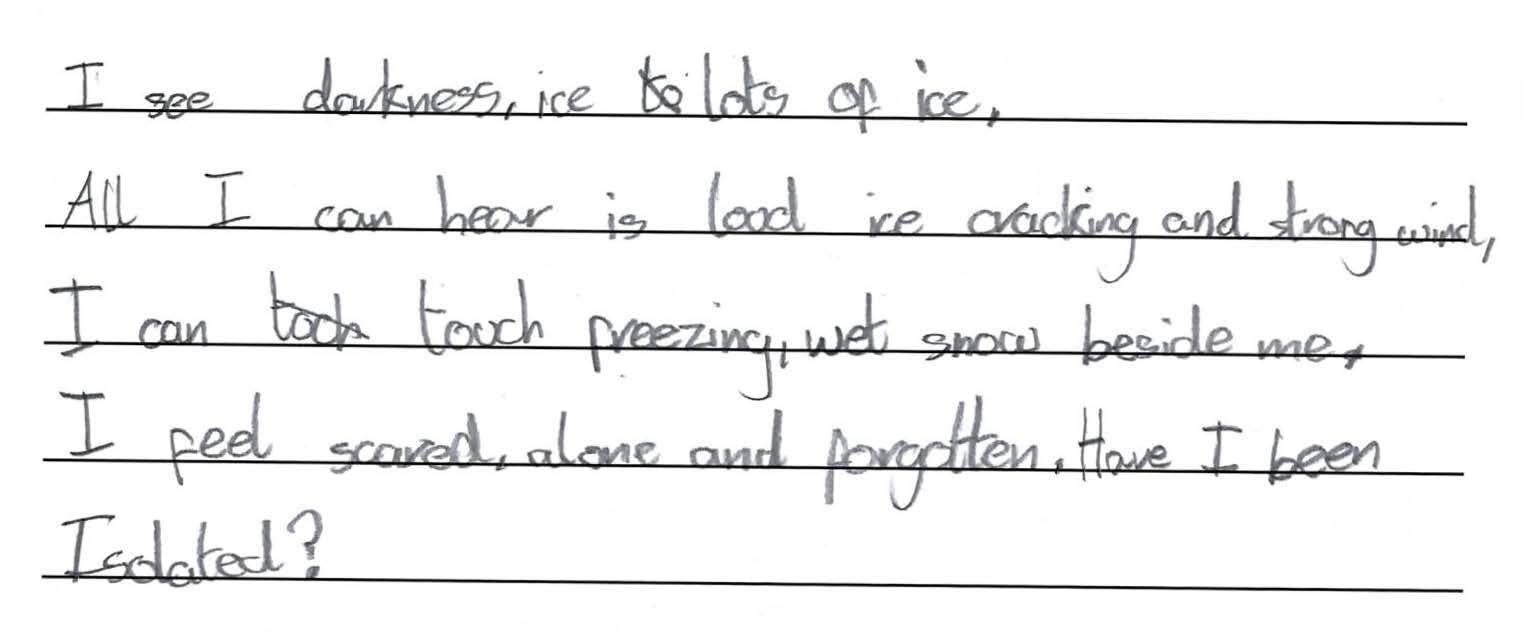 I see darkness, ice lots of ice,
All I can hear is load ice cracking and strong wind,
I can touch freezing, wet snow beside me,
I feel scared, alone and forgotten. Have I been
Isolated?